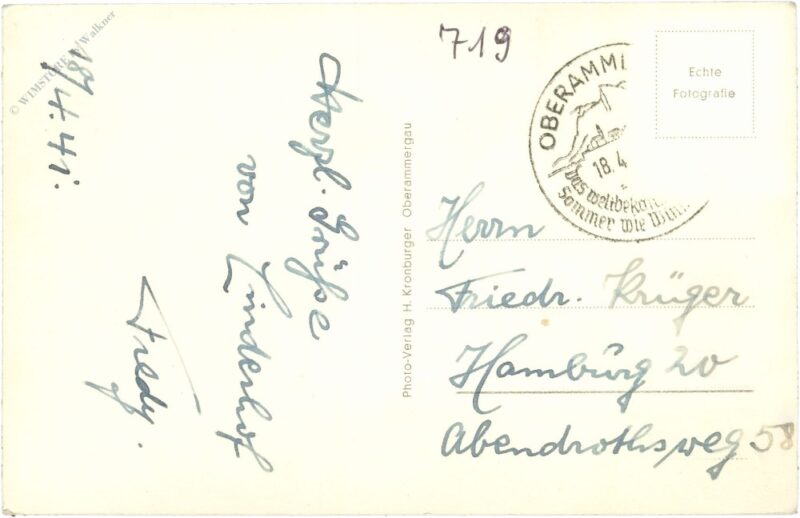 © WIMSTORE / Walkner
18/4.41.
Herzl. Grüße
von Linderhof
Fredy.
Photo-Verlag H. Kronburger Oberammergau
719
OBERAMM
18. 4
Das weltbek
Sommer wie Win
Echte
Fotografie
Herrn
Friedr. Krüger
Hamburg 20
Abendrothsweg 58